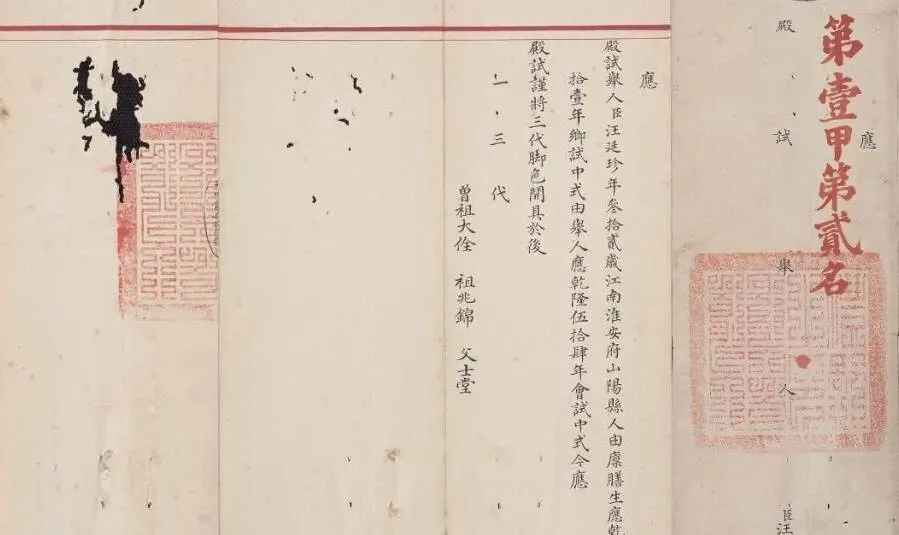 第壹甲第貳名
應
殿試舉人
臣汪
應
殿試舉人臣汪廷珍年叁拾貳歲江南淮安府山陽縣人由廩膳生應乾
拾壹年鄉試中式由舉人應乾隆伍拾肆年會試中式今應
殿試謹將三代脚色開具於後
一三代
曾祖大佺 祖兆錦 父士堂